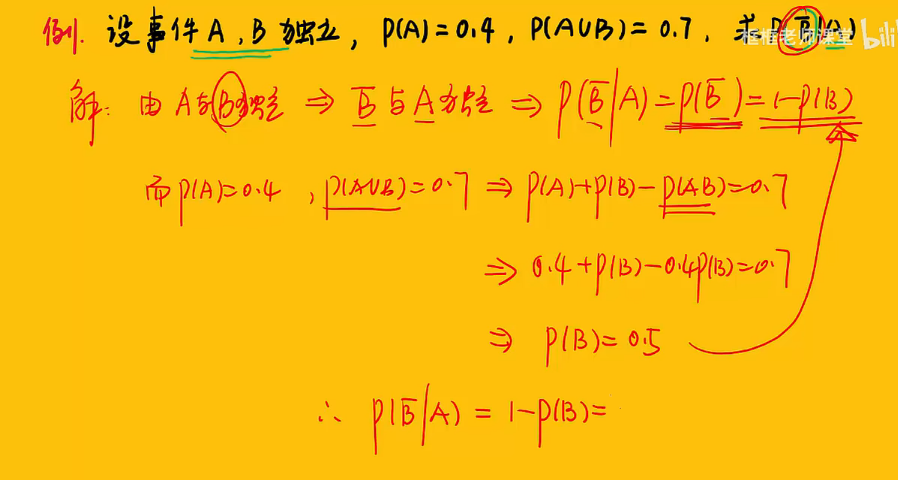 例1. 设事件 A, B 独立, P(A)=0.4, P(A∪B)=0.7. 求P(B̅|A)
框框老师课堂 bili
解: 由 A与B独立 ⇒ B̅ 与 A 独立 ⇒ P(B̅|A)=P(B̅)=1-P(B)
而 P(A)=0.4, P(A∪B)=0.7 ⇒ P(A)+P(B)-P(AB)=0.7
⇒ 0.4+P(B)-0.4P(B)=0.7
⇒ P(B)=0.5
∴ P(B̅|A) = 1-P(B)=